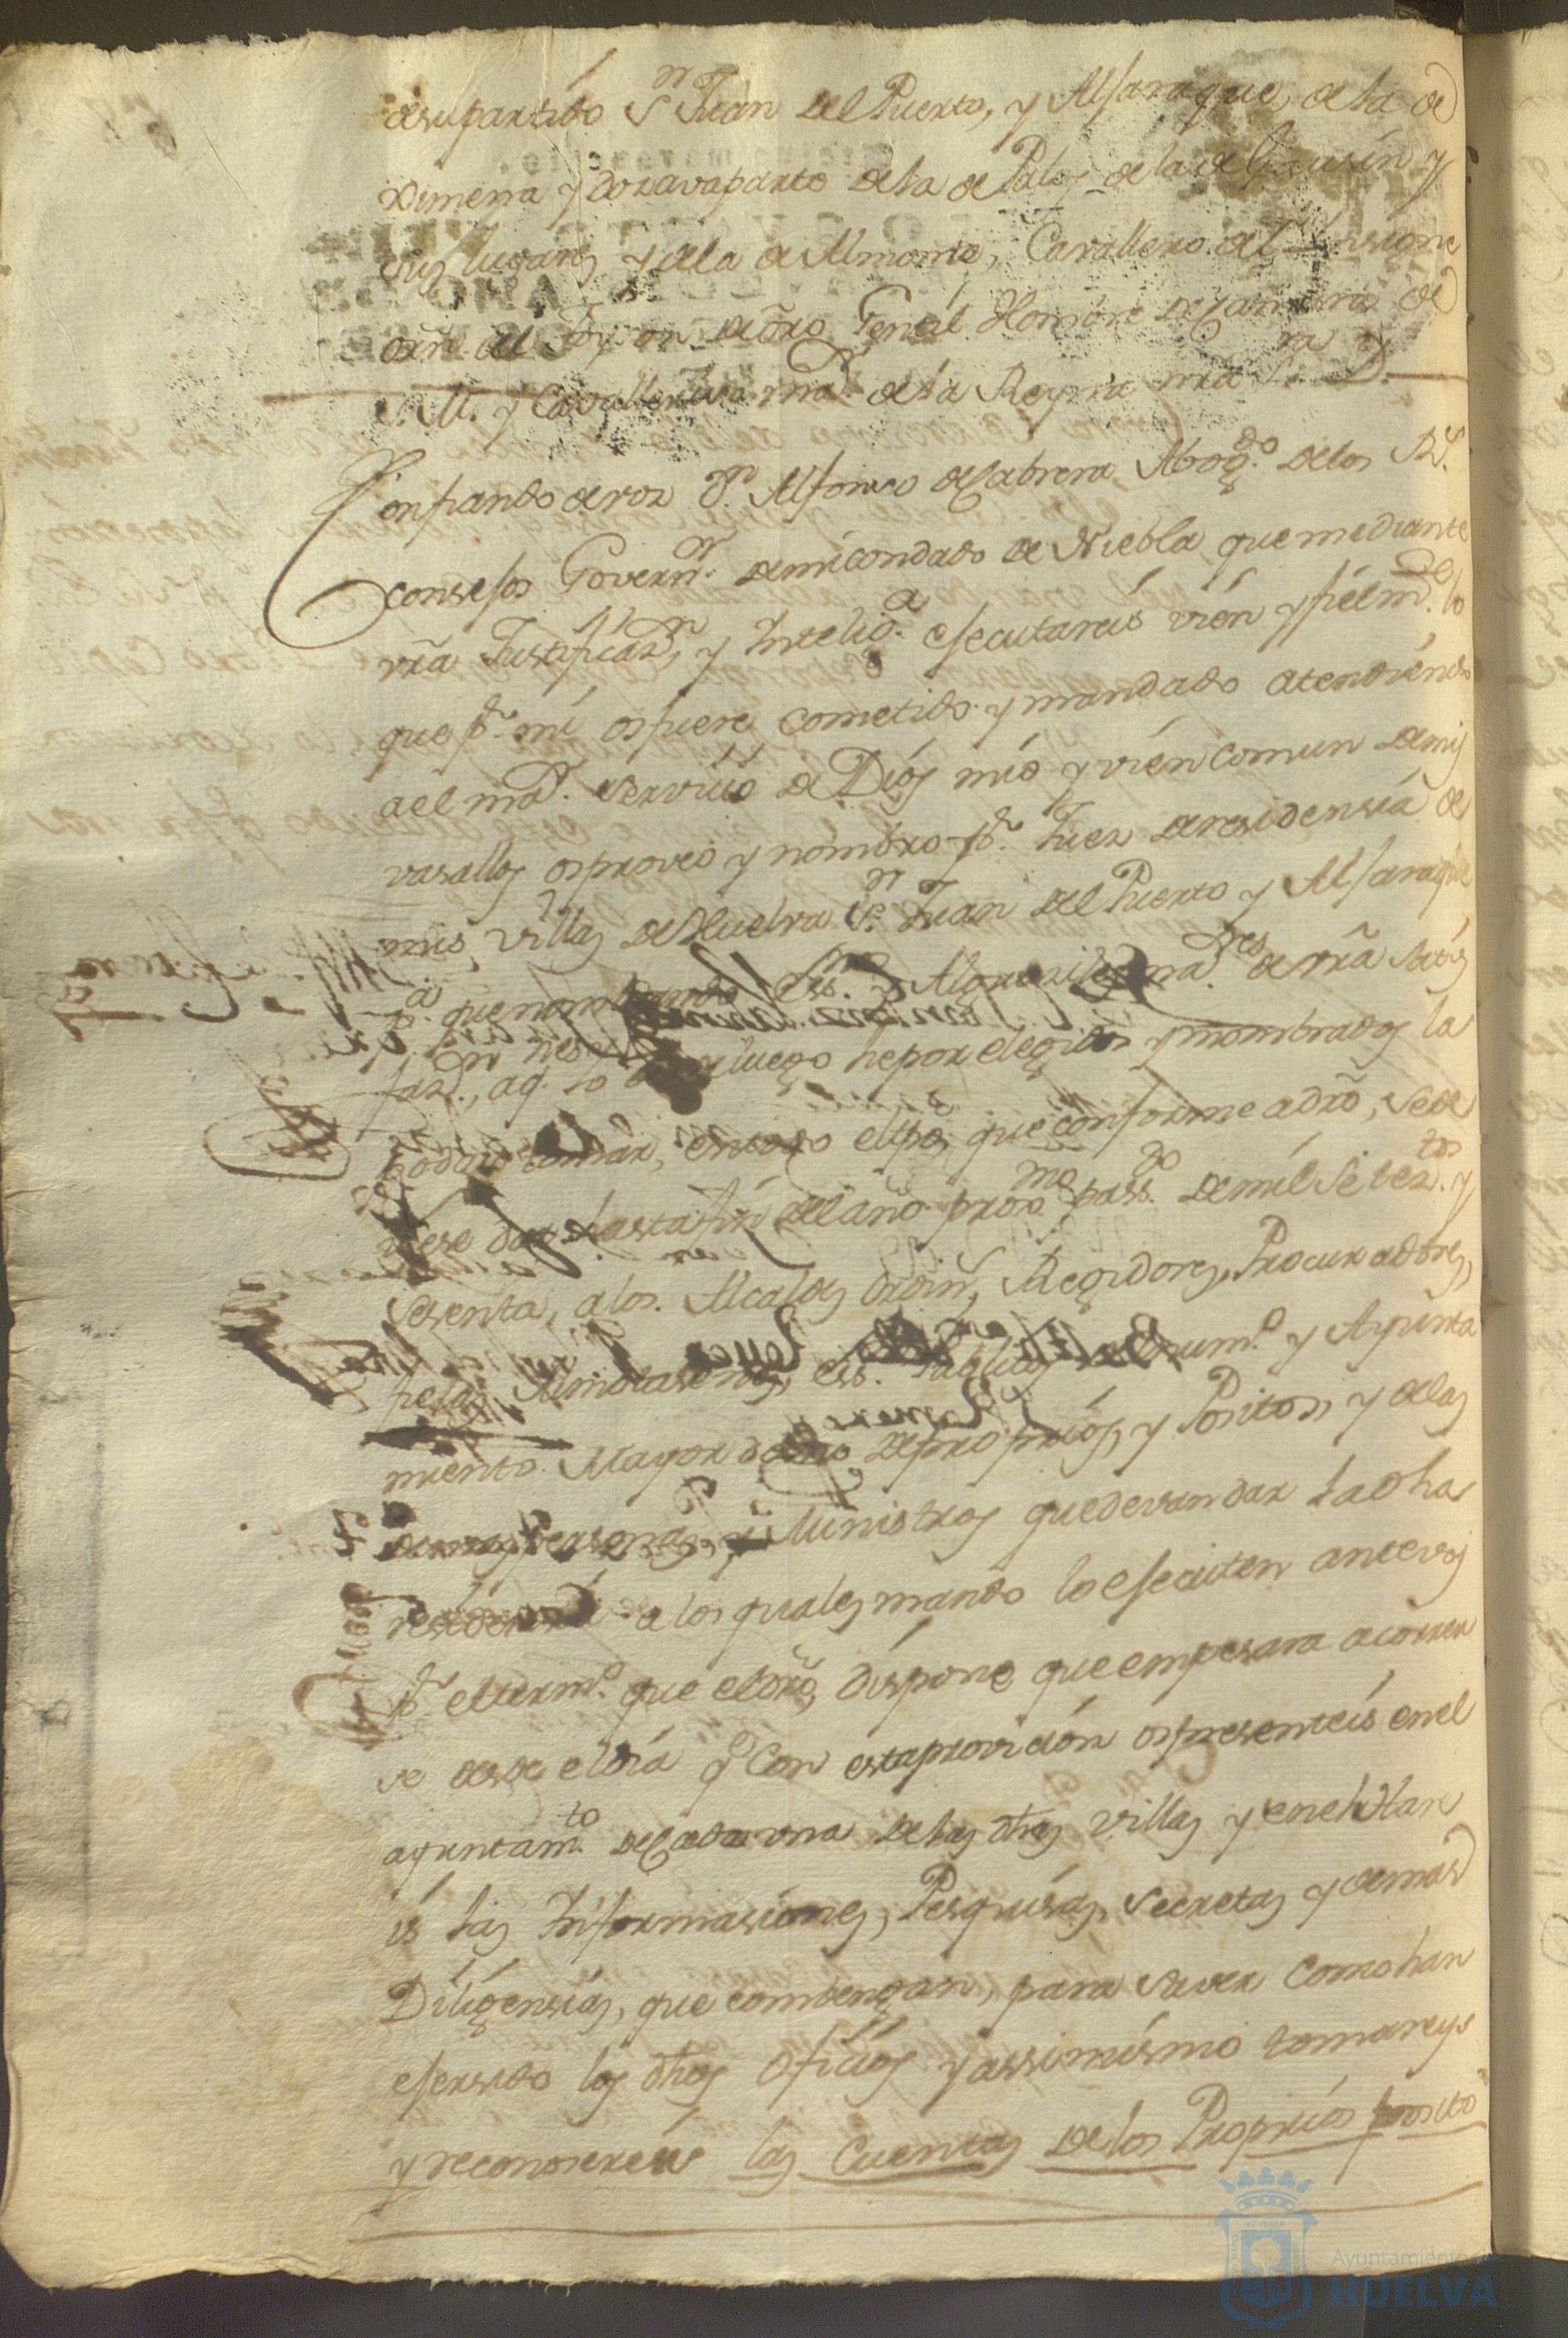 desupartido Sn Juan del Puerto, y Alfaraque, dela de
Ximena y dozava parte dela de Palos dela de Gausin y
sus lugares y dela de Almonte, Cavallero del Insigne
orñ. del Toyson de oro Gentil Hombre de Camara de
S. M. y Cavallerizo mar. dela Reyna nra Sra D.
Confiando de vos Dn. Alfonso de Cabrera Abogdo. delos Rs.
consejos Governr. demi condado de Niebla que mediante
vra Justificazn, y Inteliga. esecutareis vien y fielmte. lo
que pr. mi osfuere cometido y mandado atendiendo
ael mar. servicio de Dios mio y vien comun demis
vasallos osproveo y nombro pr. Juez deresidensia de
mis villas de Huelva Sn. Juan del Puerto y Alfaraque
pa. que nombrando Essno. y Alguasiles mares. de vra satis
fazn., aq. luego hepor elegidos y nombrados la
podais tomar, detodo eltpo, que conforme adro, sede
viese dar hasta fin del año proxmo passdo. demil seteztos. y
sesenta, alos Alcaldes ordins, Regidores, Procuradores,
fieles Almotasenes, ess. Publicos numo. y Ayunta
miento Mayordomo deproprios, y Positos, y delas
demas personas, y Ministros que devan dar la dha
residensia a los quales mando lo esecuten antevos
pr. eltermo. que eldro, dispone que empesara acorrer
se desde eldia q Con estaprovición ospresenteis enel
ayuntamto. de Cada una delas dhas villas y enel Hare
is las Informasiones, Pesquisas, Secretas y demas
Diligensias, que combengan, para saver como han
esersido los dhos oficios y assimismo tomareys
y reconosereis las Cuentas delos Proprios posito
Ayuntamiento de
HUELVA